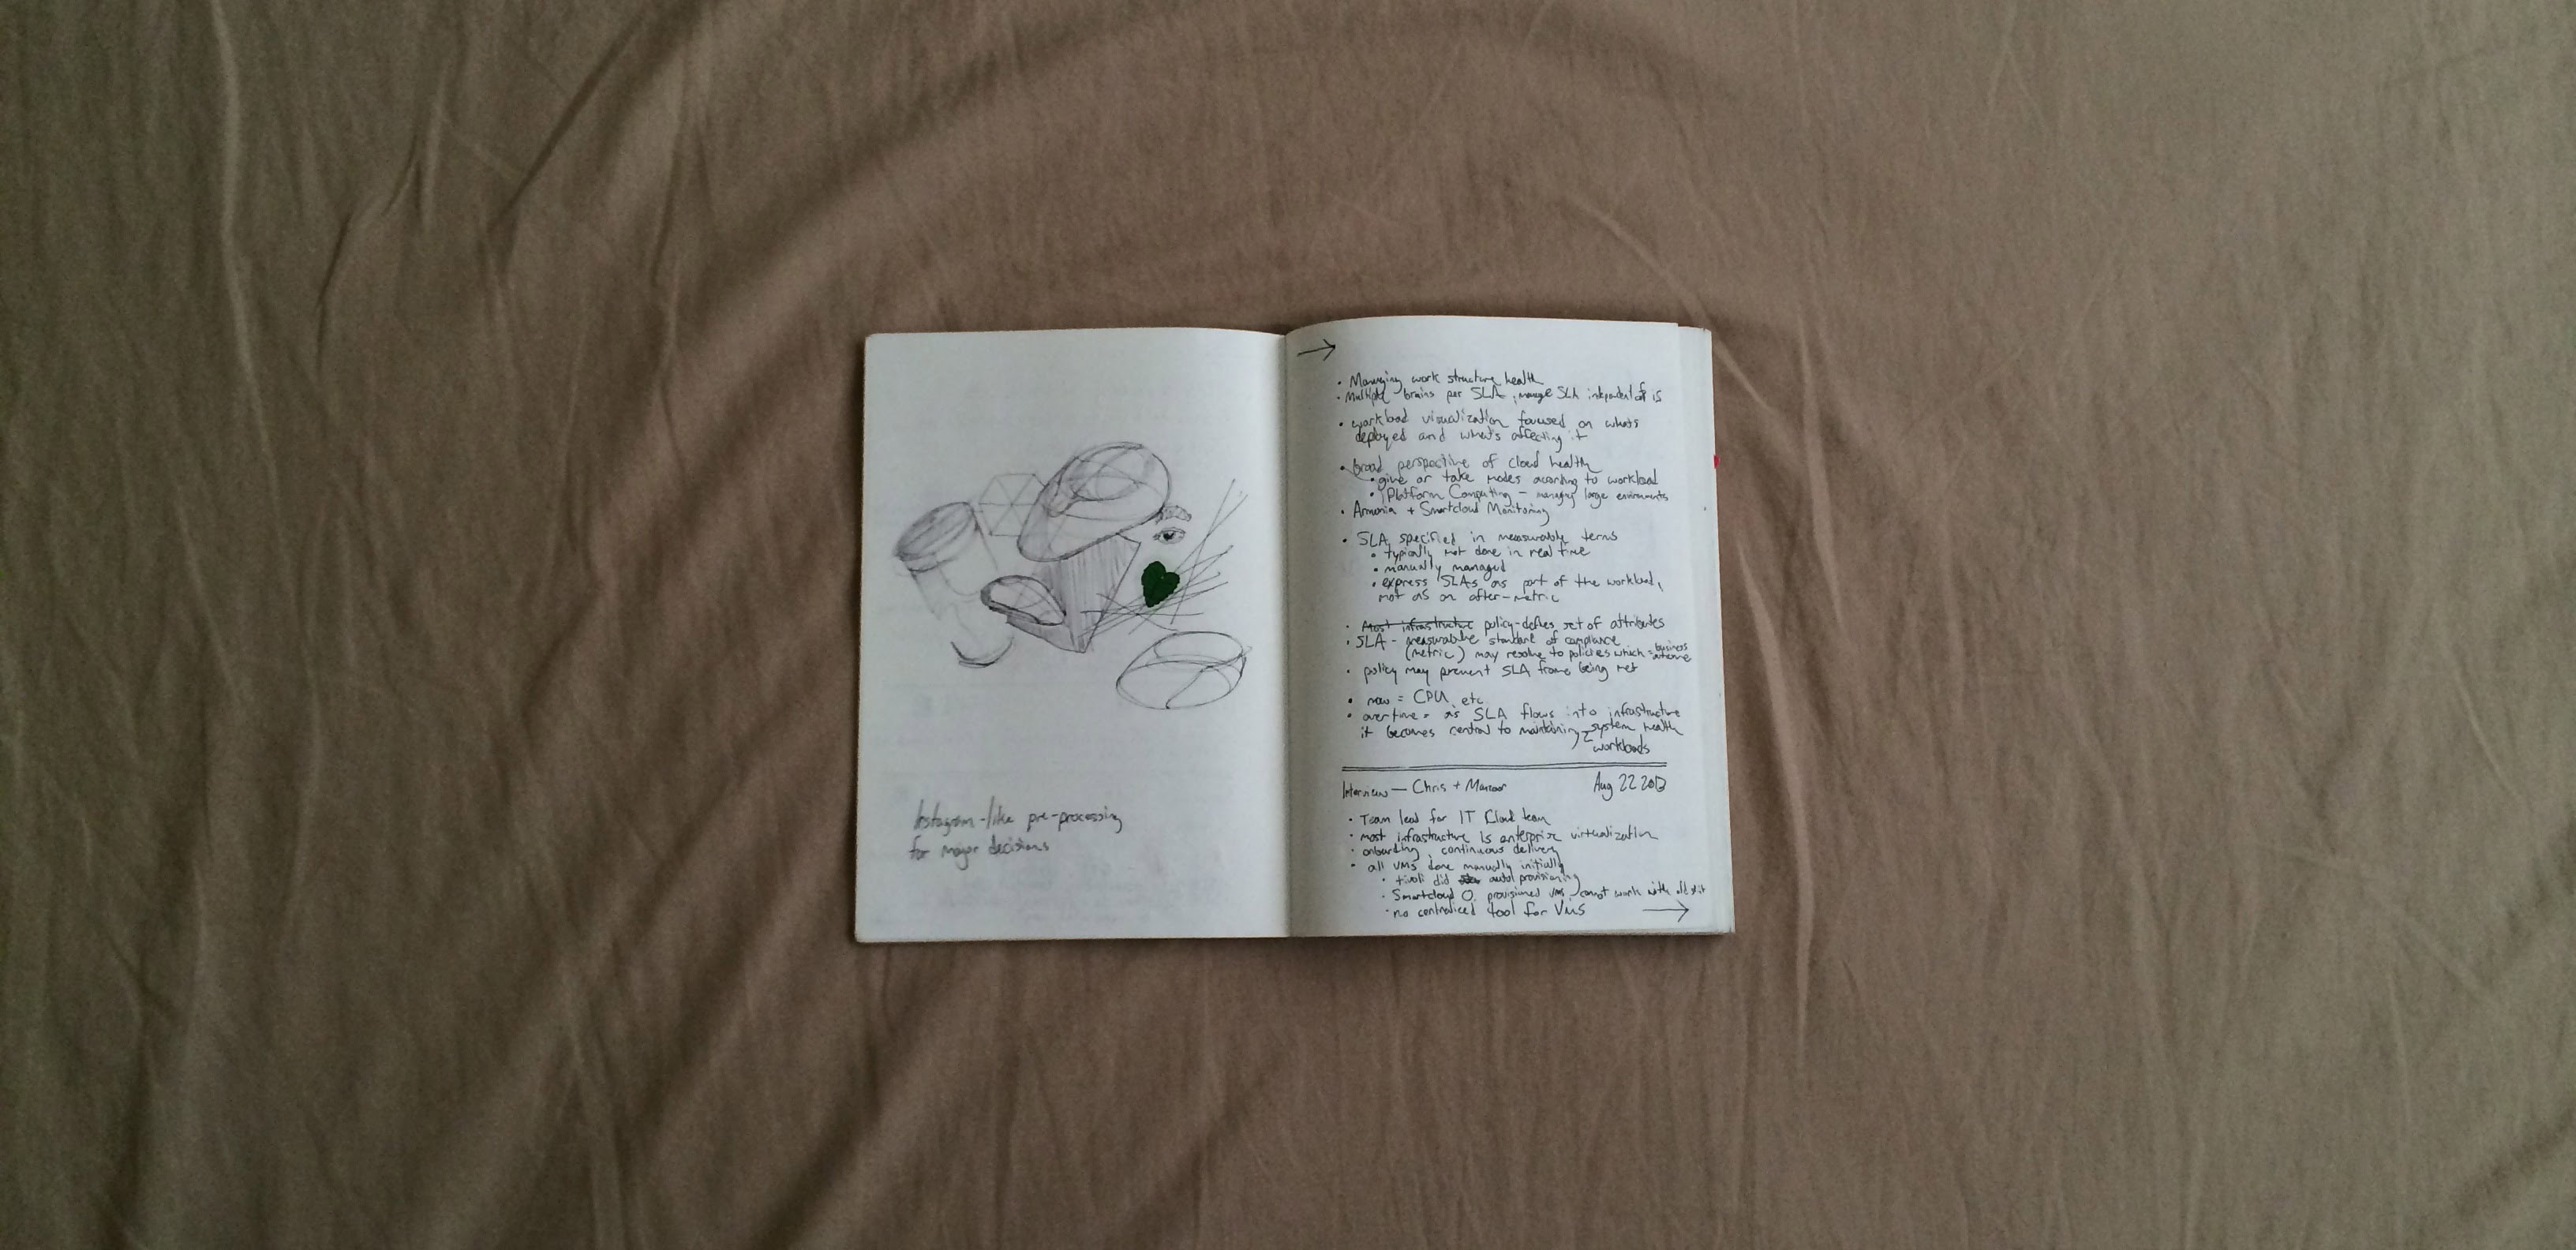 Instagram-like pre-processing
for major decisions
→
• Managing work structure health
• Multiple brains per SLA, manage SLA independent of is
• workload visualization focused on whats
deployed and what's affecting it
• broad perspective of cloud health
• give or take nodes according to workload
• Platform Computing - managing large environments
• + Smartcloud Monitoring
• SLA specified in measurable terms
• typically not done in real time
• manually managed
• express SLAs as part of the workload,
not as an after-metric
• Most infrastructure policy-defines set of attributes
• SLA - measurable standard of compliance
(metric) may resolve to policies which = business
outcome
• policy may prevent SLA from being met
• now = CPU, etc
• overtime = as SLA flows into infrastructure
it becomes central to maintaining system health
workloads
Interview — Chris + Aug 22 2013
• Team lead for IT Cloud team
• most infrastructure is enterprise virtualization
• onboarding, continuous delivery
• all VMs done manually initially
• tivoli did auto provisioning
• Smartcloud O. provisioned vms, cannot work with old
• no centralized tool for VMs →